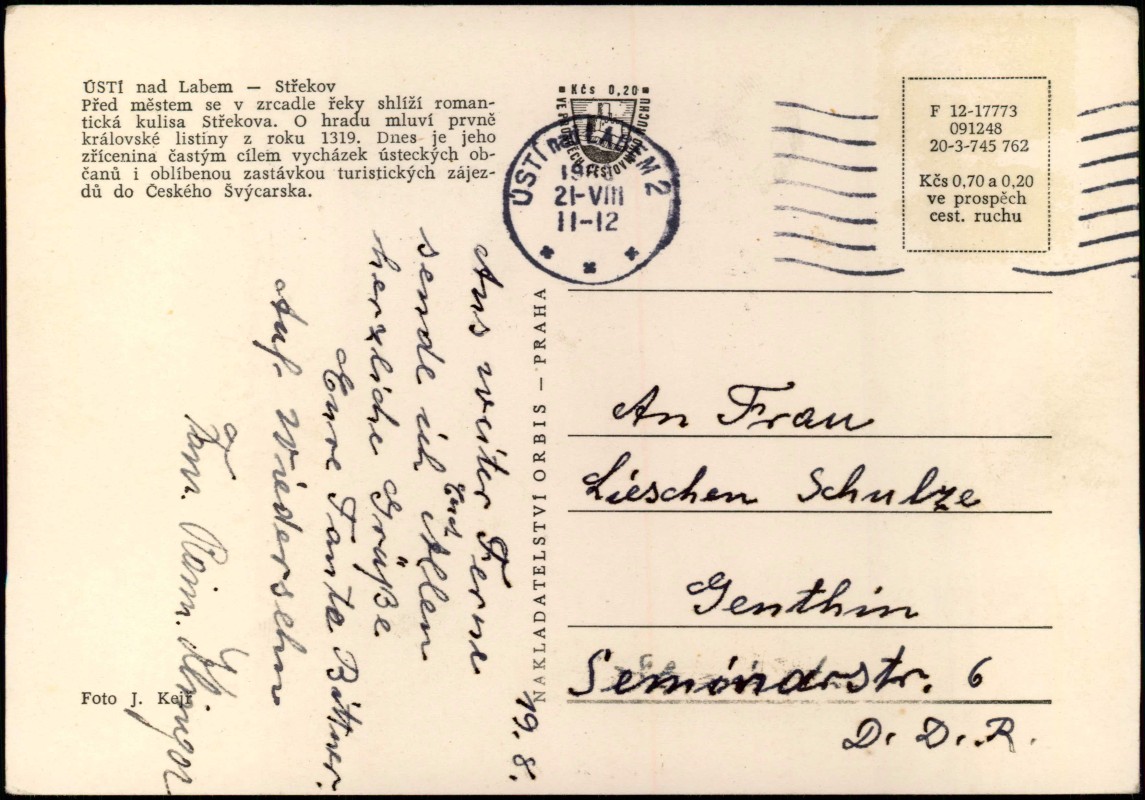 ÚSTÍ nad Labem — Střekov
Před městem se v zrcadle řeky shlíží roman-
tická kulisa Střekova. O hradu mluví prvně
královské listiny z roku 1319. Dnes je jeho
zřícenina častým cílem vycházek ústeckých ob-
čanů i oblíbenou zastávkou turistických zájez-
dů do Českého Švýcarska.
Kčs 0,20
VE PROSPĚCH CESTOVNÍHO RUCHU
ÚSTÍ nad LABEM 2
21-VIII
11-12
F 12-17773
091248
20-3-745 762
Kčs 0,70 a 0,20
ve prospěch
cest. ruchu
19.8.
Aus weiter Ferne
sende ich Euch Allen
herzliche Grüße
Eure Tante Bittner.
Auf Wiedersehn
Fam.
NAKLADATELSTVÍ ORBIS — PRAHA
An Frau
Lieschen Schulze
Genthin
Seminarstr. 6
D. D. R.
Foto J. Kejř